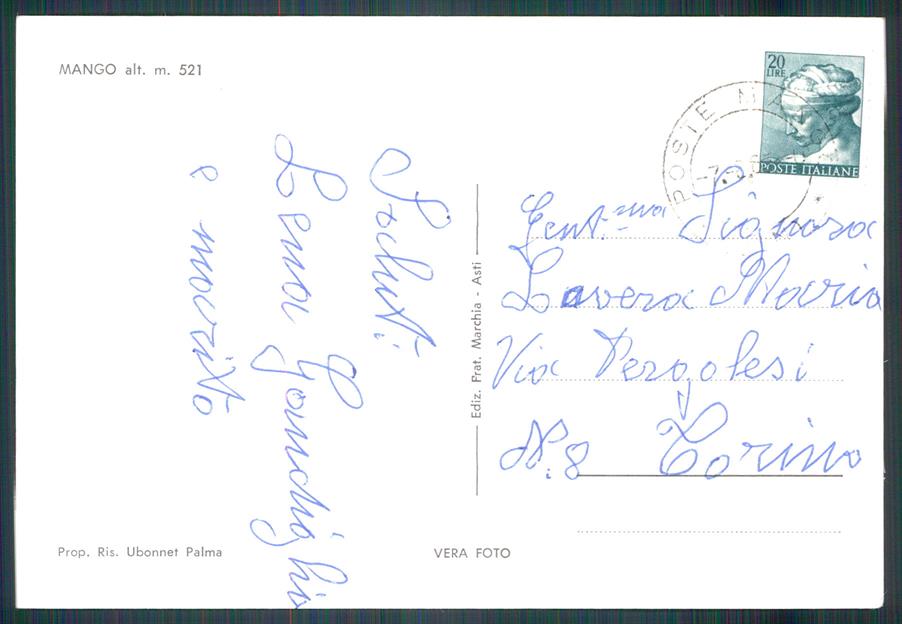 MANGO alt. m. 521
20
LIRE
POSTE ITALIANE
POSTE M
Saluti
Lena Gandighio
e marito
Ediz. Frat. Marchia - Asti
Gent.ma Signora
Lavera Maria
Via Pergolesi
N. 8 Torino
Prop. Ris. Ubonnet Palma
VERA FOTO